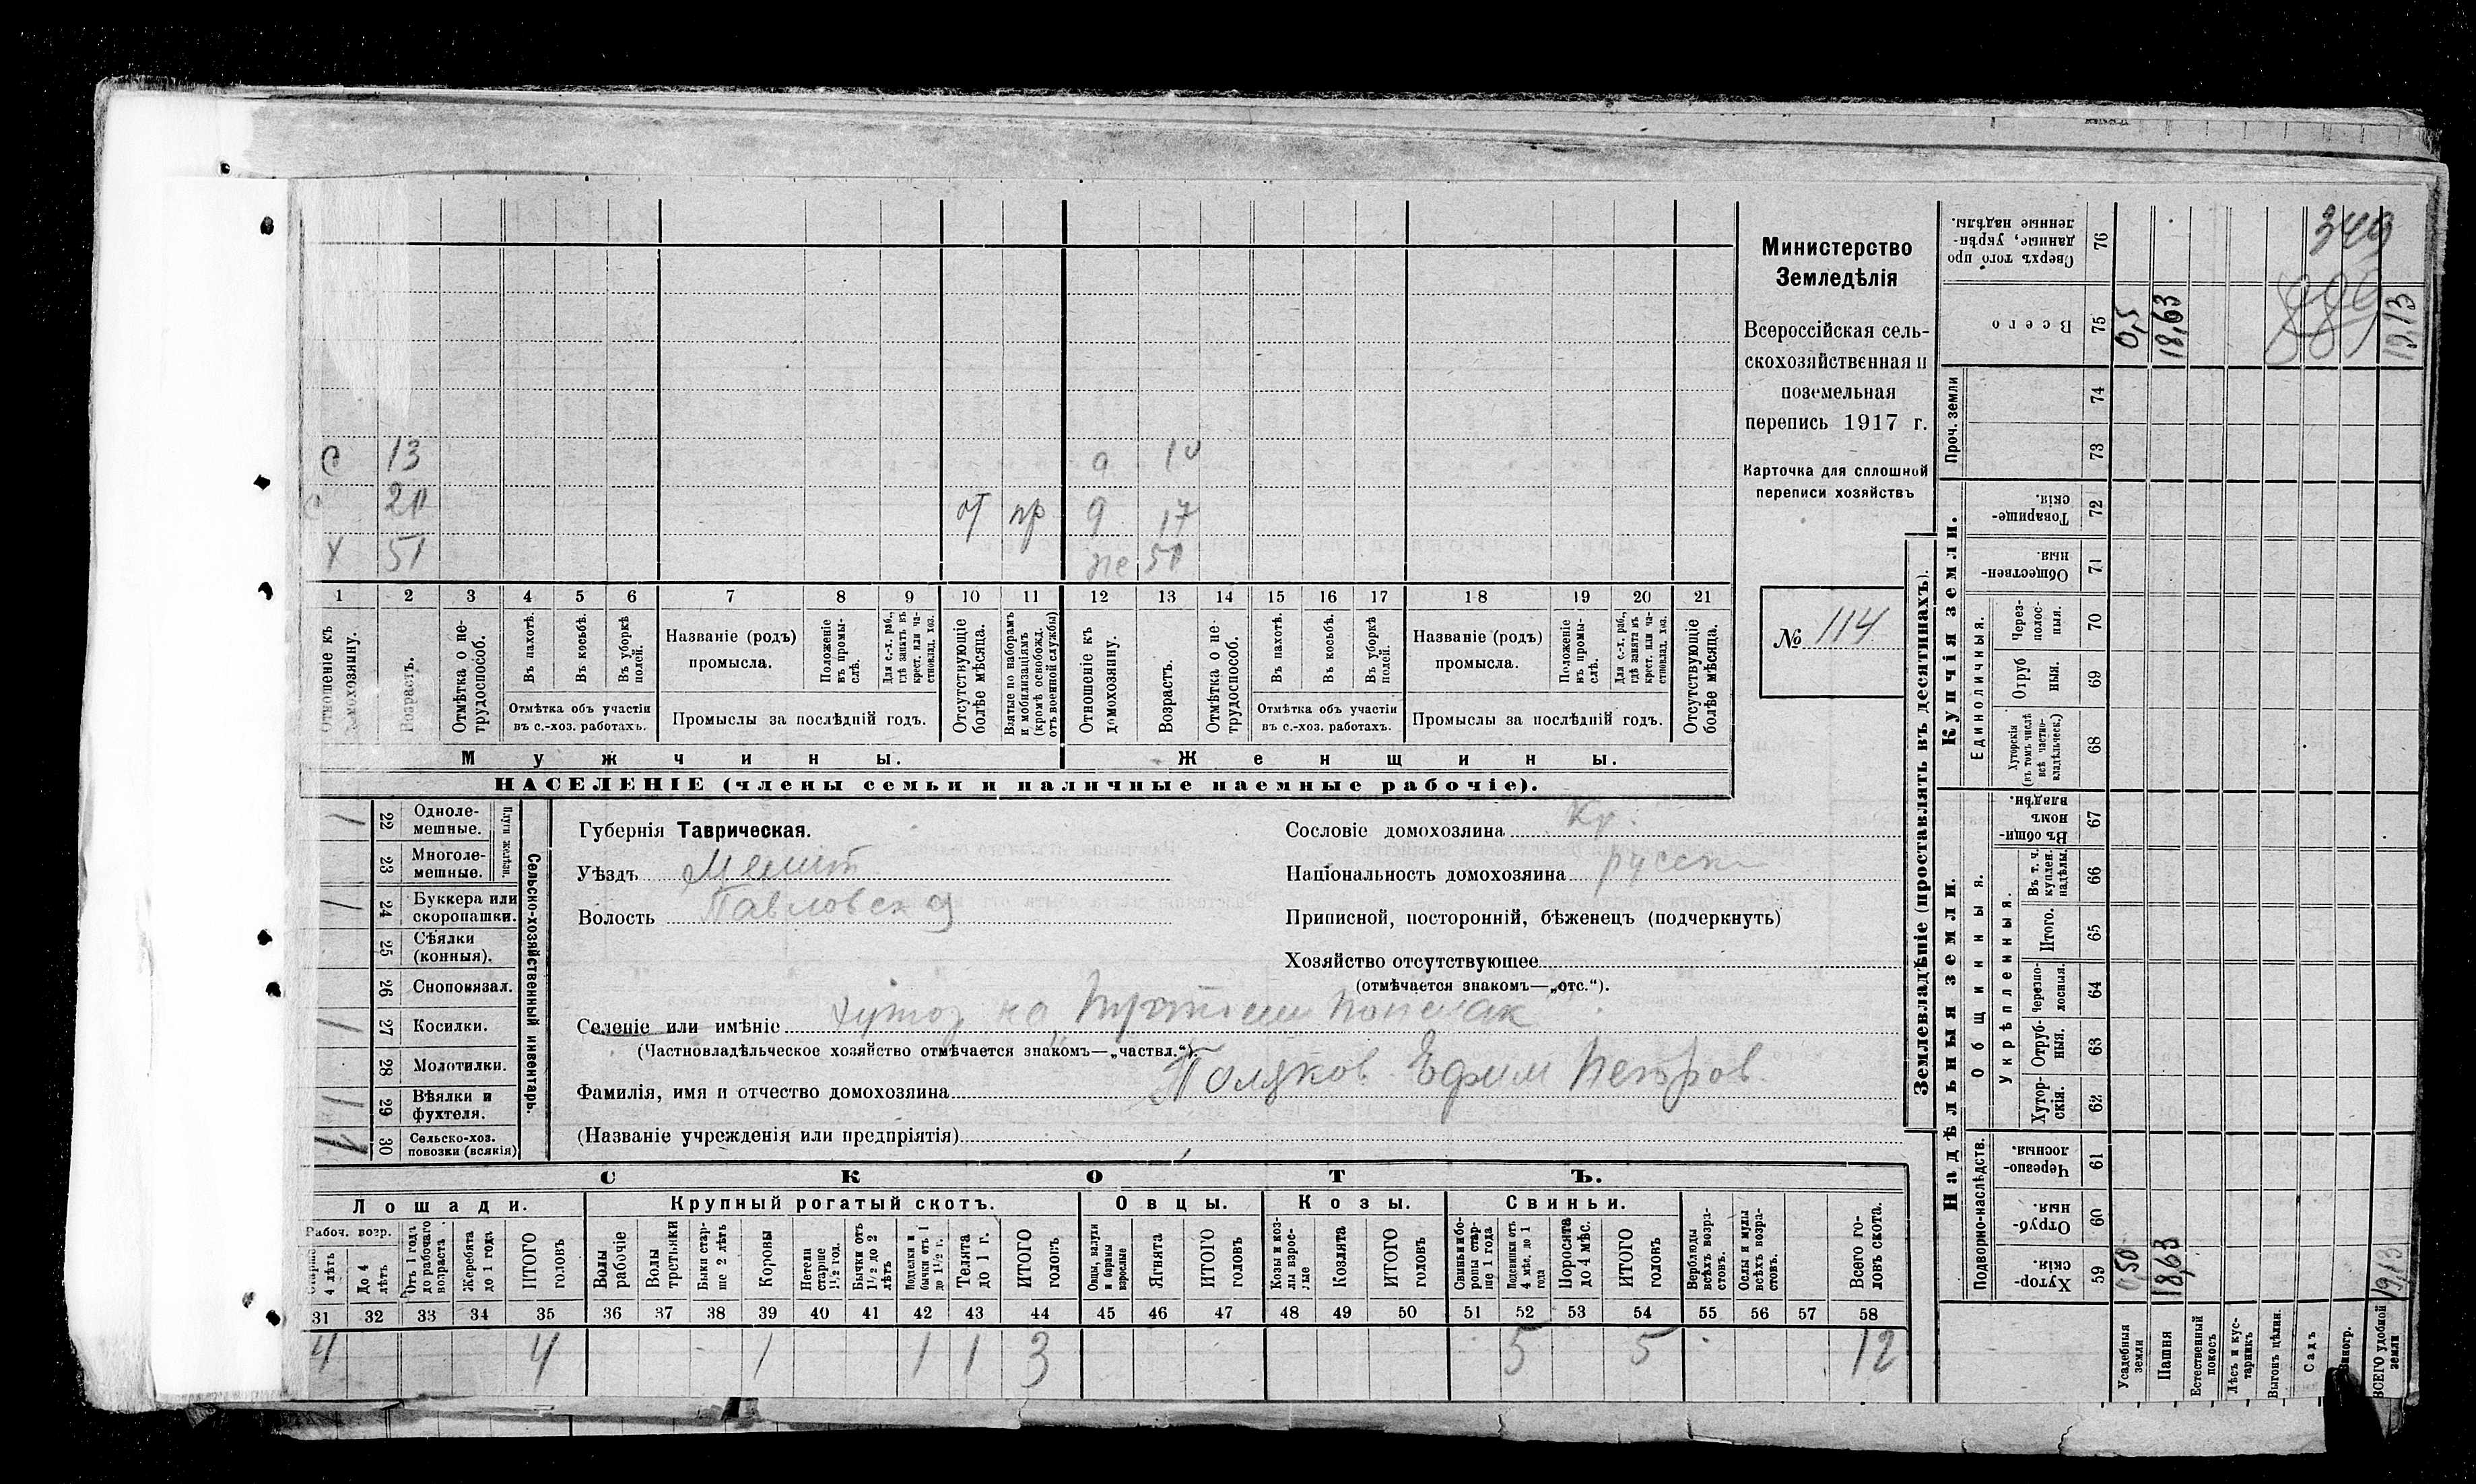 349
889
Министерство
Земледѣлія
Всероссійская сель-
скохозяйственная и
поземельная
перепись 1917 г.
Карточка для сплошной
переписи хозяйствъ
№ 114
с 13 10
20 от пр 17
х 51 же 50
1 2 3 4 5 6 7 8 9 10 11 12 13 14 15 16 17 18 19 20 21
Отношеніе къ домохозяину.
Возрастъ.
Отмѣтка о не-
трудоспособ.
Въ пахотѣ.
Въ косьбѣ.
Въ уборкѣ
полей.
Отмѣтка объ участіи
въ с.-хоз. работахъ.
Названіе (родъ)
промысла.
Положеніе
въ промы-
слѣ.
Для с.-х. раб.,
гдѣ занятъ въ
крест. или ча-
стновлад. хоз.
Промыслы за послѣдній годъ.
Отсутствующіе
болѣе мѣсяца.
Взятые по наборамъ
и мобилизаціямъ
(кромѣ освобожд.
отъ военной службы)
Отношеніе къ
домохозяину.
Возрастъ.
Отмѣтка о не-
трудоспособ.
Въ пахотѣ.
Въ косьбѣ.
Въ уборкѣ
полей.
Отмѣтка объ участіи
въ с.-хоз. работахъ.
Названіе (родъ)
промысла.
Положеніе
въ промы-
слѣ.
Для с.-х. раб.,
гдѣ занята въ
крест. или ча-
стновлад. хоз.
Промыслы за послѣдній годъ.
Отсутствующіе
болѣе мѣсяца.
Мужчины.
Женщины.
НАСЕЛЕНІЕ (члены семьи и наличные наемные рабочіе).
Сельско-хозяйственный инвентарь.
Плуги желѣзн.
1 22 Одноле-
мешные.
23 Многоле-
мешные.
1 24 Буккера или
скоропашки.
25 Сѣялки
(конныя).
26 Сноповязал.
1 27 Косилки.
28 Молотилки.
1 29 Вѣялки и
фухтеля.
30 Сельско-хоз.
повозки (всякія)
Губернія Таврическая.
Уѣздъ Мелит
Волость Павловская
Сословіе домохозяина Кр.
Національность домохозяина русск
Приписной, посторонній, бѣженецъ (подчеркнуть)
Хозяйство отсутствующее
(отмѣчается знакомъ—„отс.“).
Селеніе или имѣніе хутор на
(Частновладѣльческое хозяйство отмѣчается знакомъ—„частвл.“).
Фамилія, имя и отчество домохозяина Поляков Ефим Петров.
(Названіе учрежденія или предпріятія)
СКОТЪ.
Лошади.
Крупный рогатый скотъ.
Овцы.
Козы.
Свиньи.
Рабоч. возр.
Старше
4 лѣтъ
До 4
лѣтъ
Отъ 1 года
до рабочаго
возраста
Жеребята
до 1 года
ИТОГО
головъ
Волы
рабочіе
Волы
третьяки
Быки стар-
ше 2 лѣтъ
Коровы
Нетели
старше
1½ год.
Бычки отъ
1½ до 2
лѣтъ
Нодтелки и
бычки отъ 1
до 1½ г.
Телята
до 1 г.
ИТОГО
головъ
Овцы, валухи
и бараны
взрослые
Ягнята
ИТОГО
головъ
Козы и коз-
лы взрос-
лые
Козлята
ИТОГО
головъ
Свиньи бо-
ровы стар-
ше 1 года
Подсвинки отъ
4 мѣс. до 1
года
Поросята
до 4 мѣс.
ИТОГО
головъ
Верблюды
всѣхъ возра-
стовъ.
Ослы и мулы
всѣхъ возра-
стовъ.
Всего го-
ловъ скота.
31 32 33 34 35 36 37 38 39 40 41 42 43 44 45 46 47 48 49 50 51 52 53 54 55 56 57 58
4 4 1 1 1 3 5 5 12
Землевладѣніе (проставлять въ десятинахъ).
Надѣльныя земли.
Купчія земли.
Проч. земли
Подворно-наслѣдств.
Общинныя.
Укрѣпленныя.
Единоличныя.
Хутор-
скія. 59
Отруб-
ныя. 60
Черезпо-
лосныя. 61
Хутор-
скія. 62
Отруб-
ныя. 63
Черезпо-
лосныя. 64
Итого. 65
Въ т. ч.
куплен.
надѣлы. 66
Въ общин-
номъ
владѣн. 67
Хуторскія
(въ томъ числѣ
всѣ частно-
владѣльческ.) 68
Отруб
ныя. 69
Через-
полос-
ныя. 70
Обществен-
ныя. 71
Товарище-
скія. 72
73
74
Всего 75
Сверхъ того про
данные, укрѣп-
ленные надѣлы. 76
Усадебныя
земли 0,50 0,5
Пашня 18,63 18,63
Естественный
покосъ
Лѣсъ и кус-
тарникъ
Выгонъ цѣлин.
Садъ
Виногр.
ВСЕГО удобной
земли 19,13 19,13